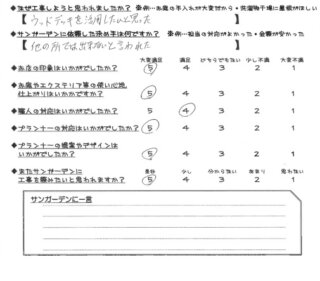 ◆なぜ工事しようと思われましたか？ ※例…お庭の手入れが大変だから・洗濯物干場に屋根がほしい
【 ウッドデッキを活用したいと思った 】
◆サンガーデンに依頼した決め手は何ですか？ ※例…担当の対応がよかった・金額が安かった
【 他の所では出来ないと言われた 】
大変満足 満足 どちらでもない 少し不満 大変不満
◆お店の印象はいかがでしたか？ 5 4 3 2 1
◆お庭やエクステリア等の使い心地、
仕上がりはいかがですか？ 5 4 3 2 1
◆職人の対応はいかがでしたか？ 5 4 3 2 1
◆プランナーの対応はいかがでしたか？ 5 4 3 2 1
◆プランナーの提案やデザインは
いかがでしたか？ 5 4 3 2 1
◆またサンガーデンに 少し 分からない あまり 思わない
工事を頼みたいと思われますか？ 5 4 3 2 1
サンガーデンに一言